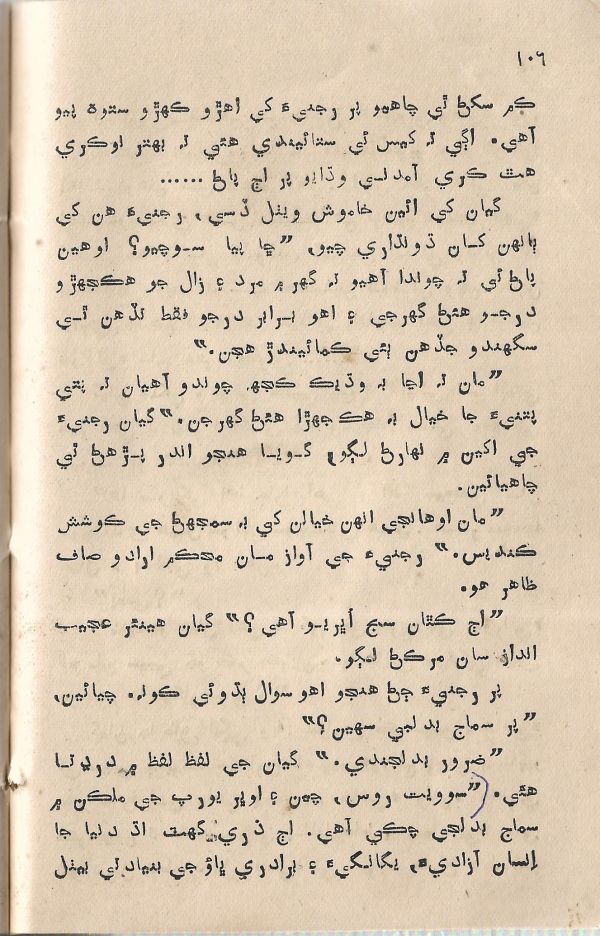 ١٠٦
ڪم سکڻ ٿي چاهيو پر رجنيءَ کي اهڙو ڪهڙو ستوه پيو
آهي. اڳي تہ ڪيس ئي ستائيندي هئي تہ بهتر نوڪري
هٿ ڪري آمدني وڌايو پر اڄ پاڻ ......
گيان کي ائين خاموش ويٺل ڏسي، رجنيءَ هن کي
ٻانهن کان ڌونڌاري چيو، ”ڇا پيا سوچيو؟ اوهين
پاڻ ئي تہ چوندا آهيو تہ گهر ۾ مرد ۽ زال جو هڪجهڙو
درجو هئڻ گهرجي ۽ اهو برابر درجو فقط تڏهن ٿي
سگهندو جڏهن ٻئي ڪمائيندڙ هجن.“
”مان تہ اڃا بہ وڌيڪ ڪجهہ چوندو آهيان تہ پتي
پتنيءَ جا خيال بہ هڪجهڙا هئڻ گهرجن.“ گيان رجنيءَ
جي اکين ۾ نهارڻ لڳو، گويا هنجو اندر پڙهڻ ٿي
چاهيائين.
”مان اوهانجي انهن خيالن کي بہ سمجهڻ جي ڪوشش
ڪنديس.“ رجنيءَ جي آواز مان محڪم ارادو صاف
ظاهر هو.
”اڄ ڪٿان سج اُڀريو آهي؟“ گيان هينئر عجيب
انداز سان مرڪڻ لڳو.
پر رجنيءَ ڄڻ هنجو اهو سوال ٻڌو ئي ڪونہ. چيائين،
”پر سماج بدلبي سهين؟“
”ضرور بدلجندي.“ گيان جي لفظ لفظ ۾ درڍتا
هئي. ”سوويت روس، چين ۽ اوڀر يورپ جي ملڪن ۾
سماج بدلجي چڪي آهي. اڄ ذري گهٽ اڌ دنيا جا
انسان آزاديءَ، يگانگيءَ ۽ برادري ڀاؤ جي بنياد تي بيٺل